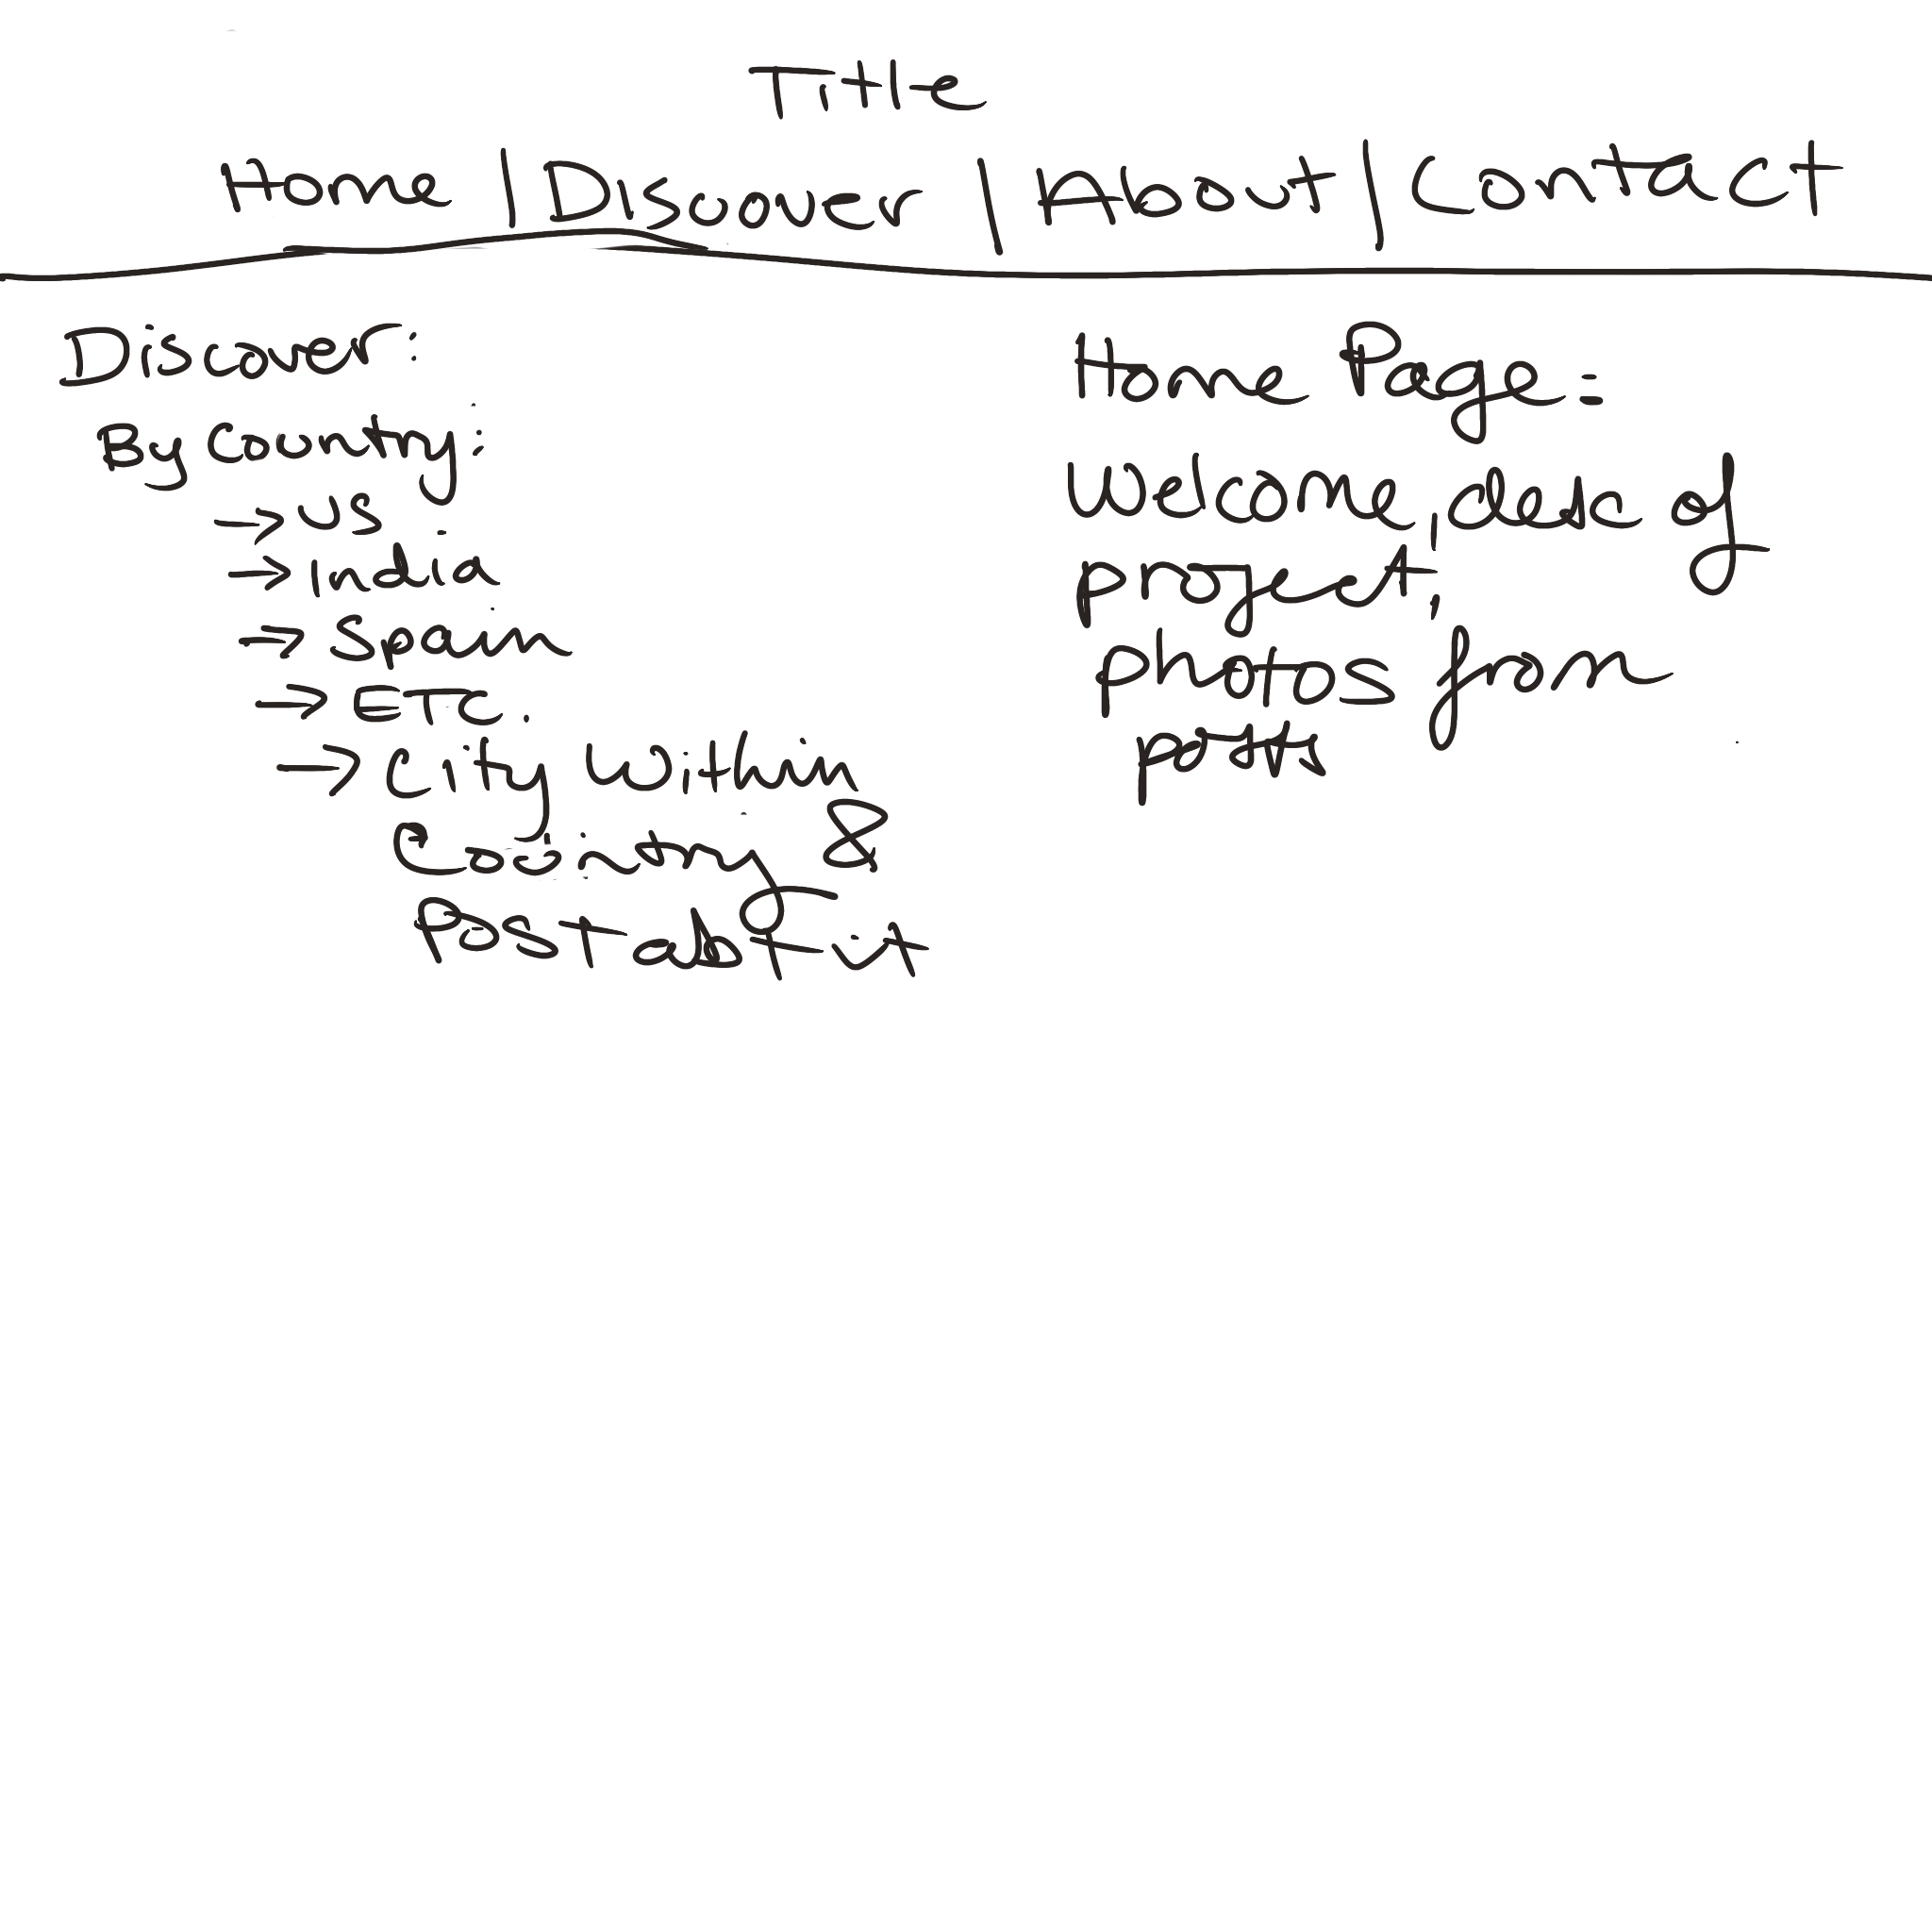 Title
Home | Discover | About | Contact
Discover:
By Country:
→ US.
→ India
→ Spain
→ ETC.
→ City within
Country &
Post abt it
Home Page:
Welcome, desc of
project,
photos from